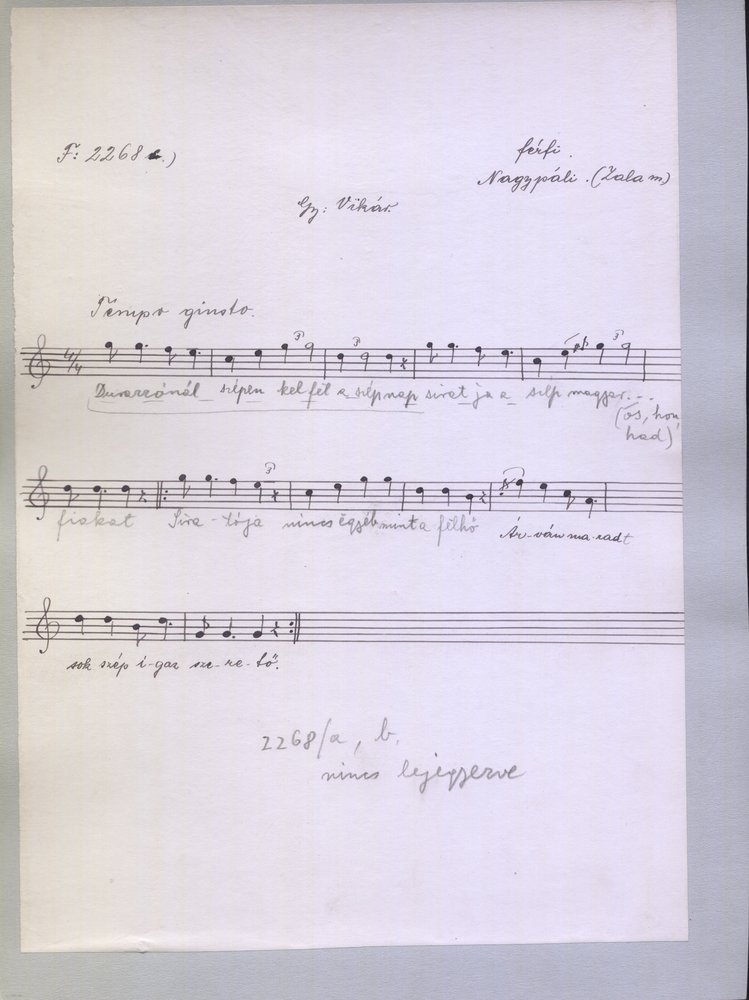 F: 2268 c.)
férfi.
Nagypáli. (Zala m)
Gy: Vikár.
Tempo giusto.
4/4
Durazzónál szépen kel fel a szép nap sirat ja a szép magyar...
(ős, hon,
had)
fiakat Sira-tója nincs egyéb mint a félhő Ár-ván ma-radt
sok szép i-gaz sze-re-tő.
2268/a, b.
nincs lejegyezve